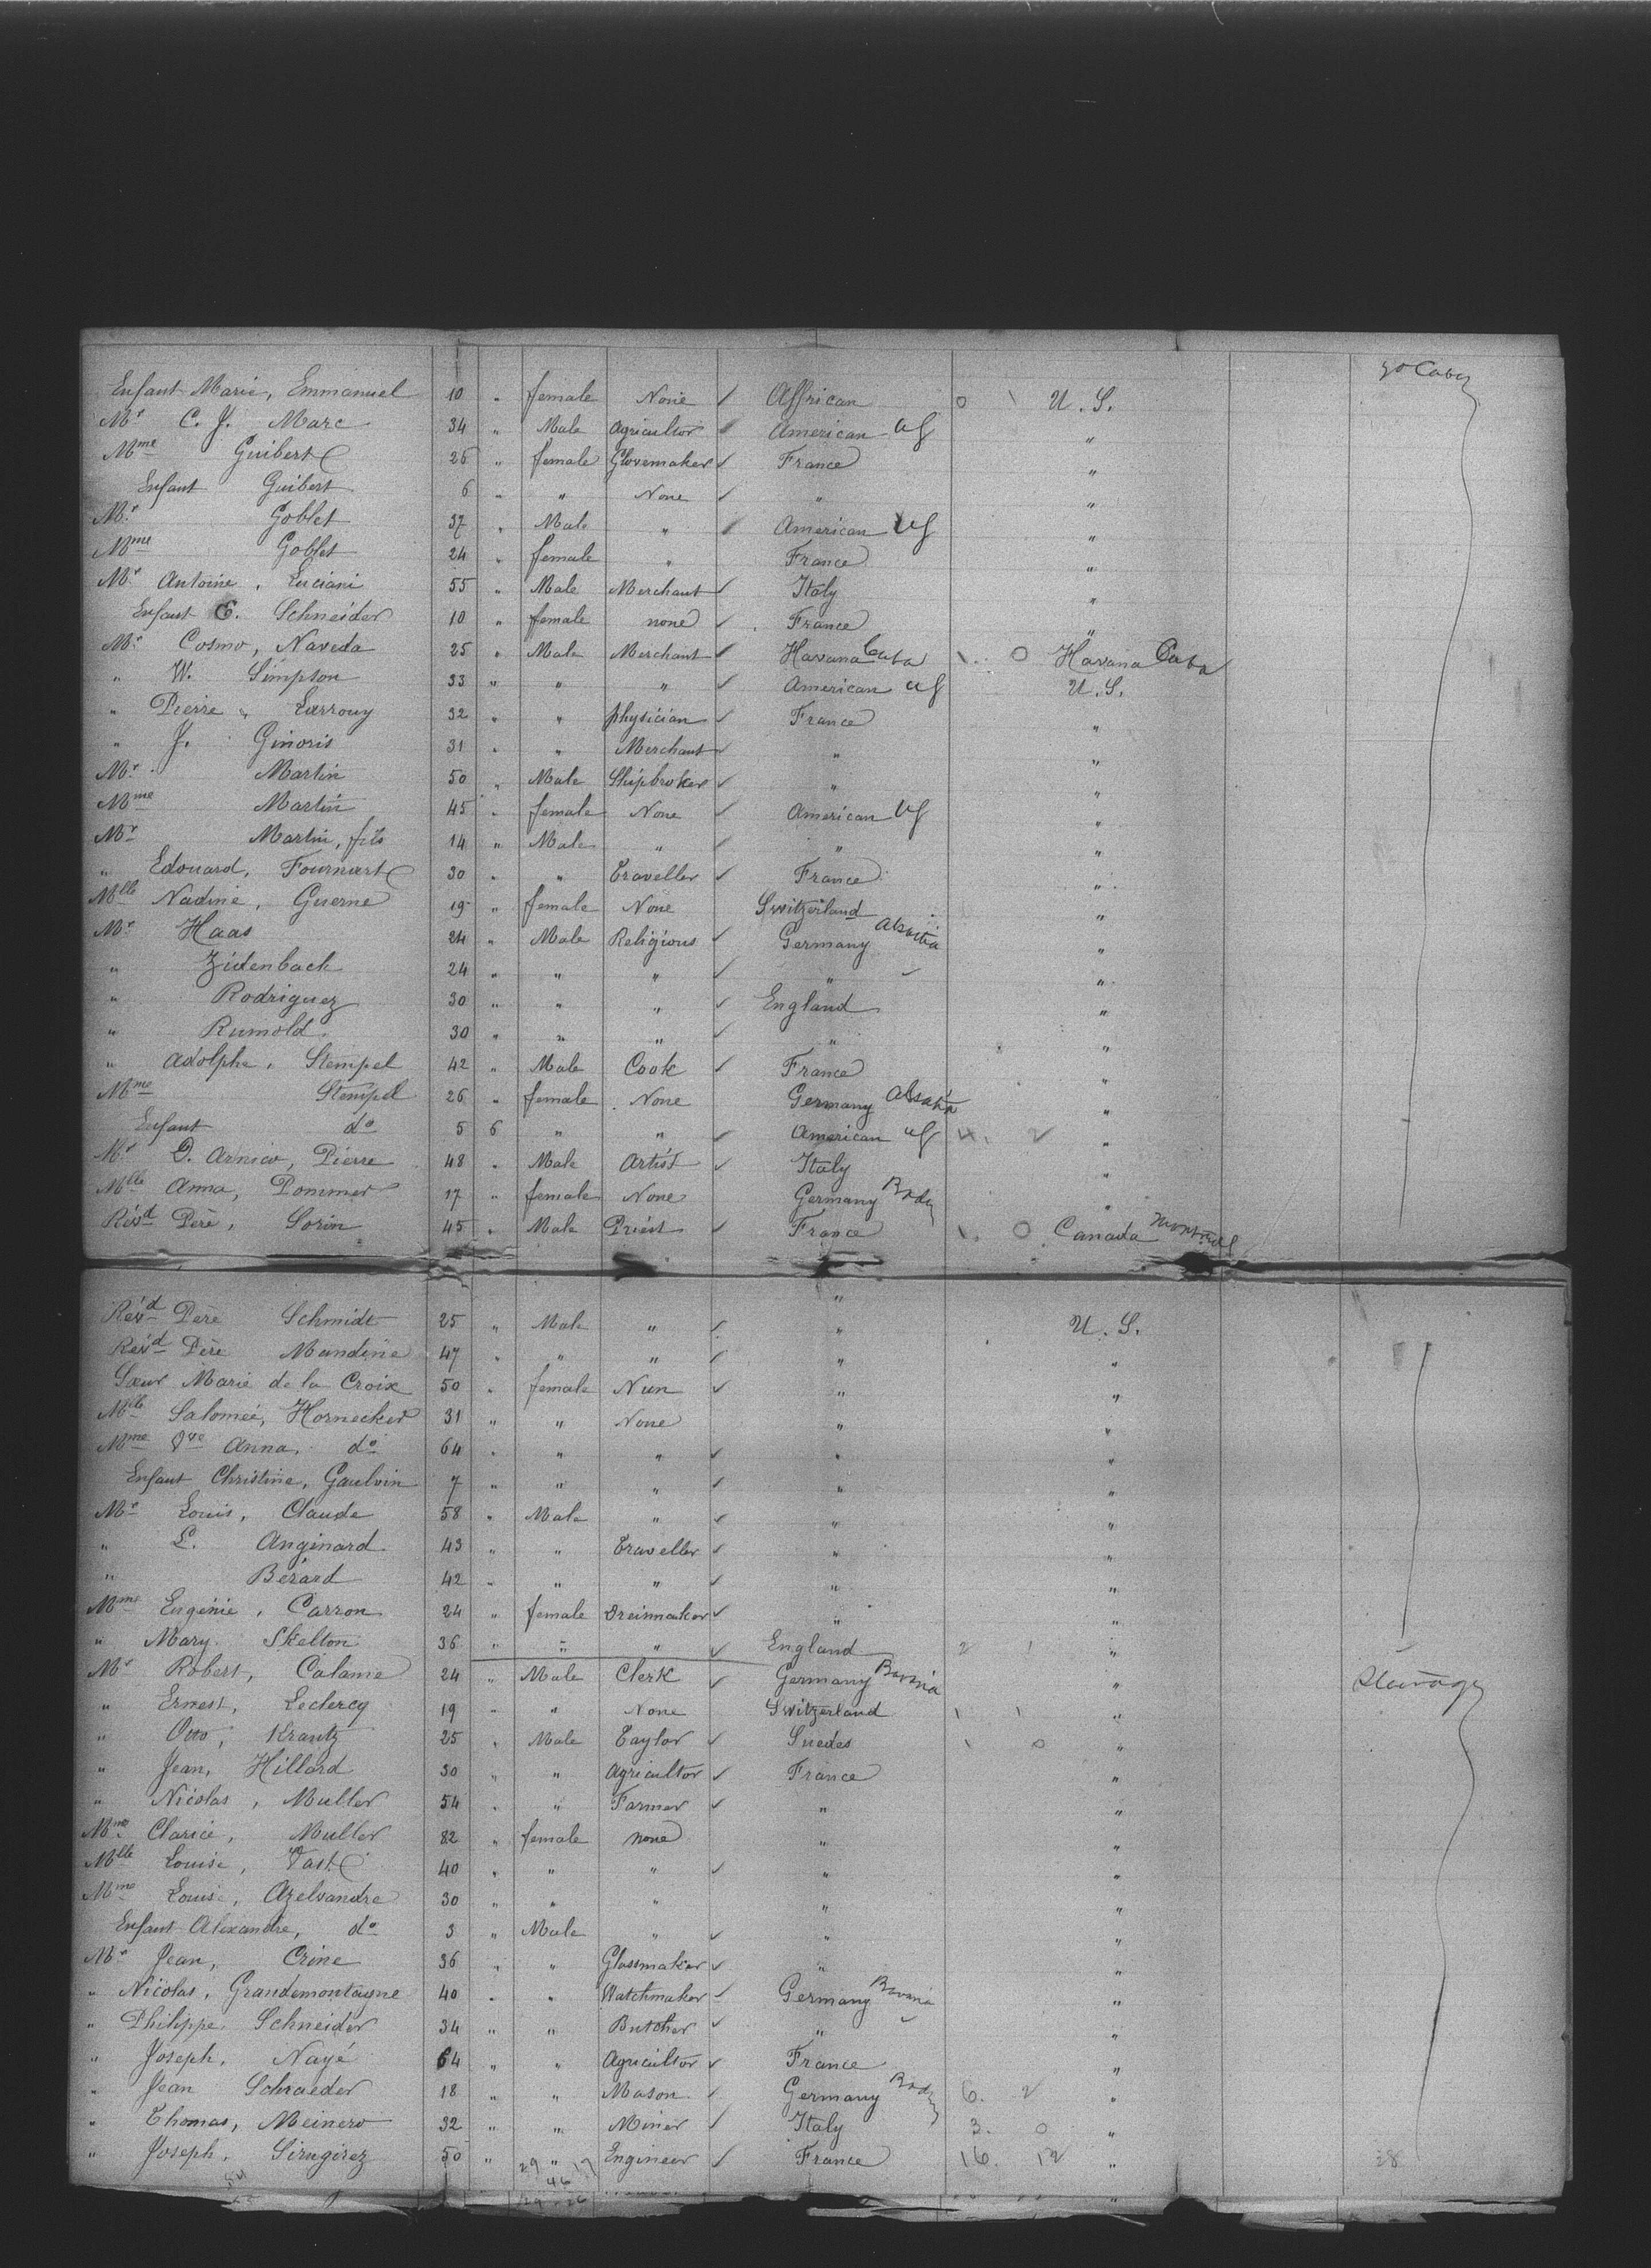 2d Cabin
Enfant Marie, Emmanuel 10 " female None ✓ Affrican 0 1 U. S.
Mr C. J. Marc 34 " Male Agricultor American "
Mme Guibert 26 " female Glovemaker ✓ France "
Enfant Guibert 6 " " None ✓ " "
Mr Goblet 37 " Male " American "
Mme Goblet 24 " female " France "
Mr Antoine, Luciani 55 " Male Merchant ✓ Italy "
Enfant E. Schneider 10 " female none ✓ France "
Mr Cosmo, Naveda 25 " Male Merchant ✓ Havana Cuba 1. 0 Havana Cuba
" W. Simpson 33 " " " ✓ American U. S.
" Pierre, Larrouy 32 " " physician ✓ France "
" J. Ginoris 31 " " Merchant ✓ " "
Mr Martin 50 " Male Shipbroker ✓ " "
Mme Martin 45 " female None ✓ American "
Mr Martin, fils 14 " Male " ✓ " "
" Edouard, Fournart 30 " " Traveller ✓ France "
Mlle Nadine, Guerne 19 " female None Switzerland "
Mr Haas 24 " Male Religious ✓ Germany Alsatia "
" Zidenback 24 " " " ✓ " "
" Rodriguez 30 " " " ✓ England "
" Rumold 30 " " " ✓ " "
" Adolphe, Stempel 42 " Male Cook ✓ France "
Mme Stempel 26 " female None Germany Alsatia "
Enfant do 5 6 " " ✓ American 4. 2 "
Mr D. Arnico, Pierre 48 " Male Artist ✓ Italy "
Mlle Anna, Pommer 17 " female None Germany "
Révd Père, Sorin 45 " Male Priest ✓ France 1. 0 Canada Montreal
Révd Père Schmidt 25 " Male " ✓ " U. S.
Révd Père Mandine 47 " " " ✓ " "
Sœur Marie de la Croix 50 " female Nun ✓ " "
Mlle Salomée, Hornecker 31 " " None " "
Mme Vve Anna, do 64 " " " ✓ " "
Enfant Christine, Gaulvin 7 " " " ✓ " "
Mr Louis, Claude 58 " Male " ✓ " "
" L. Anginard 43 " " Traveller ✓ " "
" Bérard 42 " " " ✓ " "
Mme Eugénie, Carron 24 " female Dreinmaker ✓ " "
" Mary Skelton 36 " " " ✓ England 2 1 "
Mr Robert, Calame 24 " Male Clerk ✓ Germany Bavaria " Steerage
" Ernest, Leclercq 19 " " None Switzerland 1 1 "
" Otto, Krantz 25 " Male Taylor ✓ Suedes 1 0 "
" Jean, Hillard 30 " " Agricultor ✓ France "
" Nicolas, Muller 54 " " Farmer ✓ " "
Mme Clarice, Muller 82 " female none " "
Mlle Louise, Vast 40 " " " ✓ " "
Mme Louise, Azelvandre 30 " " " " "
Enfant Alexandre, do 3 " Male " ✓ " "
Mr Jean, Crine 36 " " Glassmaker ✓ " "
" Nicolas, Grandemontagne 40 " " Watchmaker ✓ Germany Bavaria "
" Philippe Schneider 34 " " Butcher ✓ " "
" Joseph, Nayé 64 " " Agricultor ✓ France "
" Jean Schraeder 18 " " Mason ✓ Germany 6. 2 "
" Thomas, Meinero 32 " " Miner ✓ Italy 3. 0 "
" Joseph, Sirugirez 50 " " Engineer ✓ France 16. 12 " 28
29 17
46